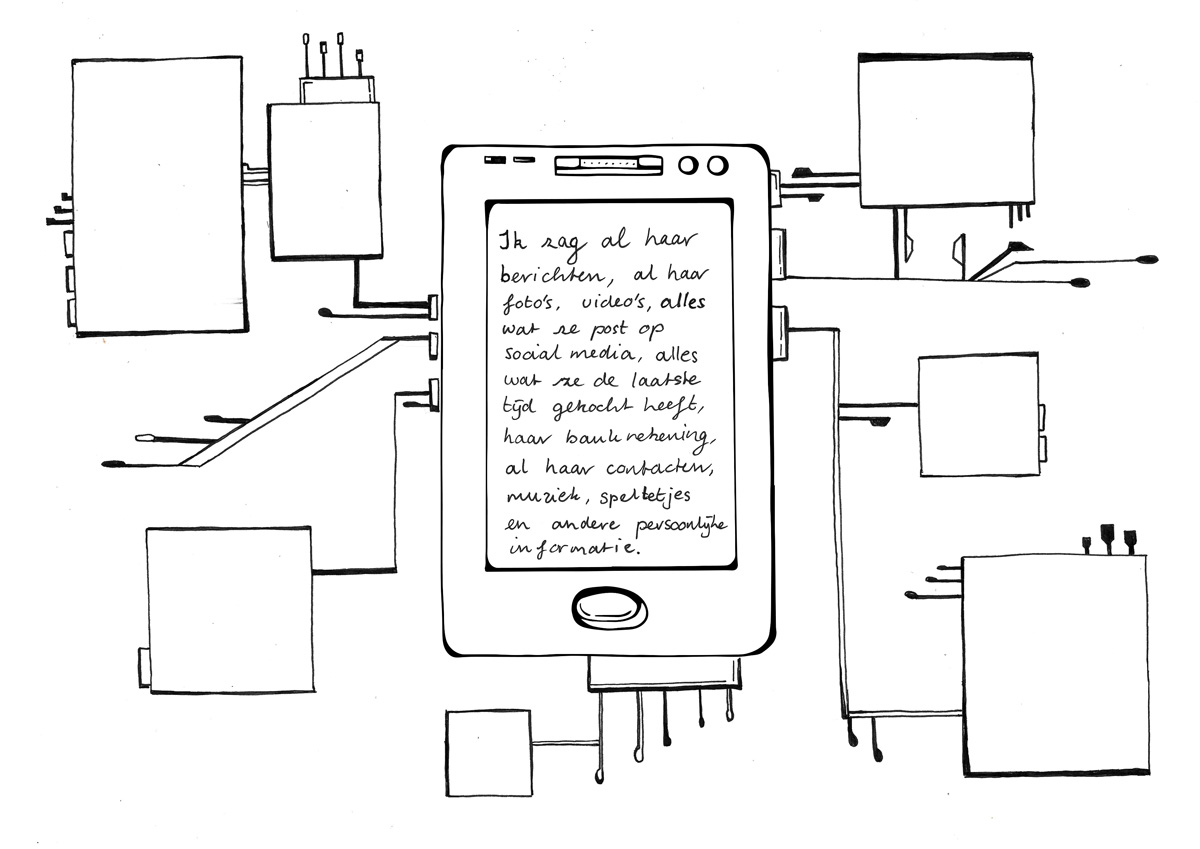 Ik zag al haar
berichten, al haar
foto's, video's, alles
wat ze post op
social media, alles
wat ze de laatste
tijd gekocht heeft,
haar bankrekening,
al haar contacten,
muziek, spelletjes
en andere persoonlijke
informatie.